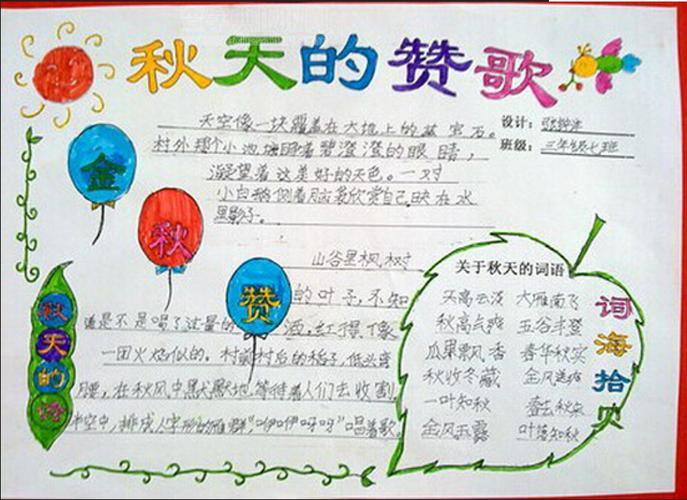 秋天的赞歌
天空像一块覆盖在大地上的蓝宝石。
村外那个小池塘睁着碧澄澄的眼睛，
凝望着这美好的天色。一对
小白鹅侧着脑袋欣赏自己映在水
里影子。
设计：
班级：三年级七班
金
秋
赞
山谷里枫树
的叶子，不知
道是不是喝了过量的酒，红得像
一团火焰似的。村前村后的稻子，低头弯
腰，在秋风中默默地等待着人们去收割
空中，排成人字形的雁群，“咿咿呀呀”唱着歌。
秋天的诗
关于秋天的词语
天高云淡 大雁南飞
秋高气爽 五谷丰登
瓜果飘香 春华秋实
秋收冬藏 金风送爽
一叶知秋 春去秋来
金风玉露 叶落知秋
词海拾贝